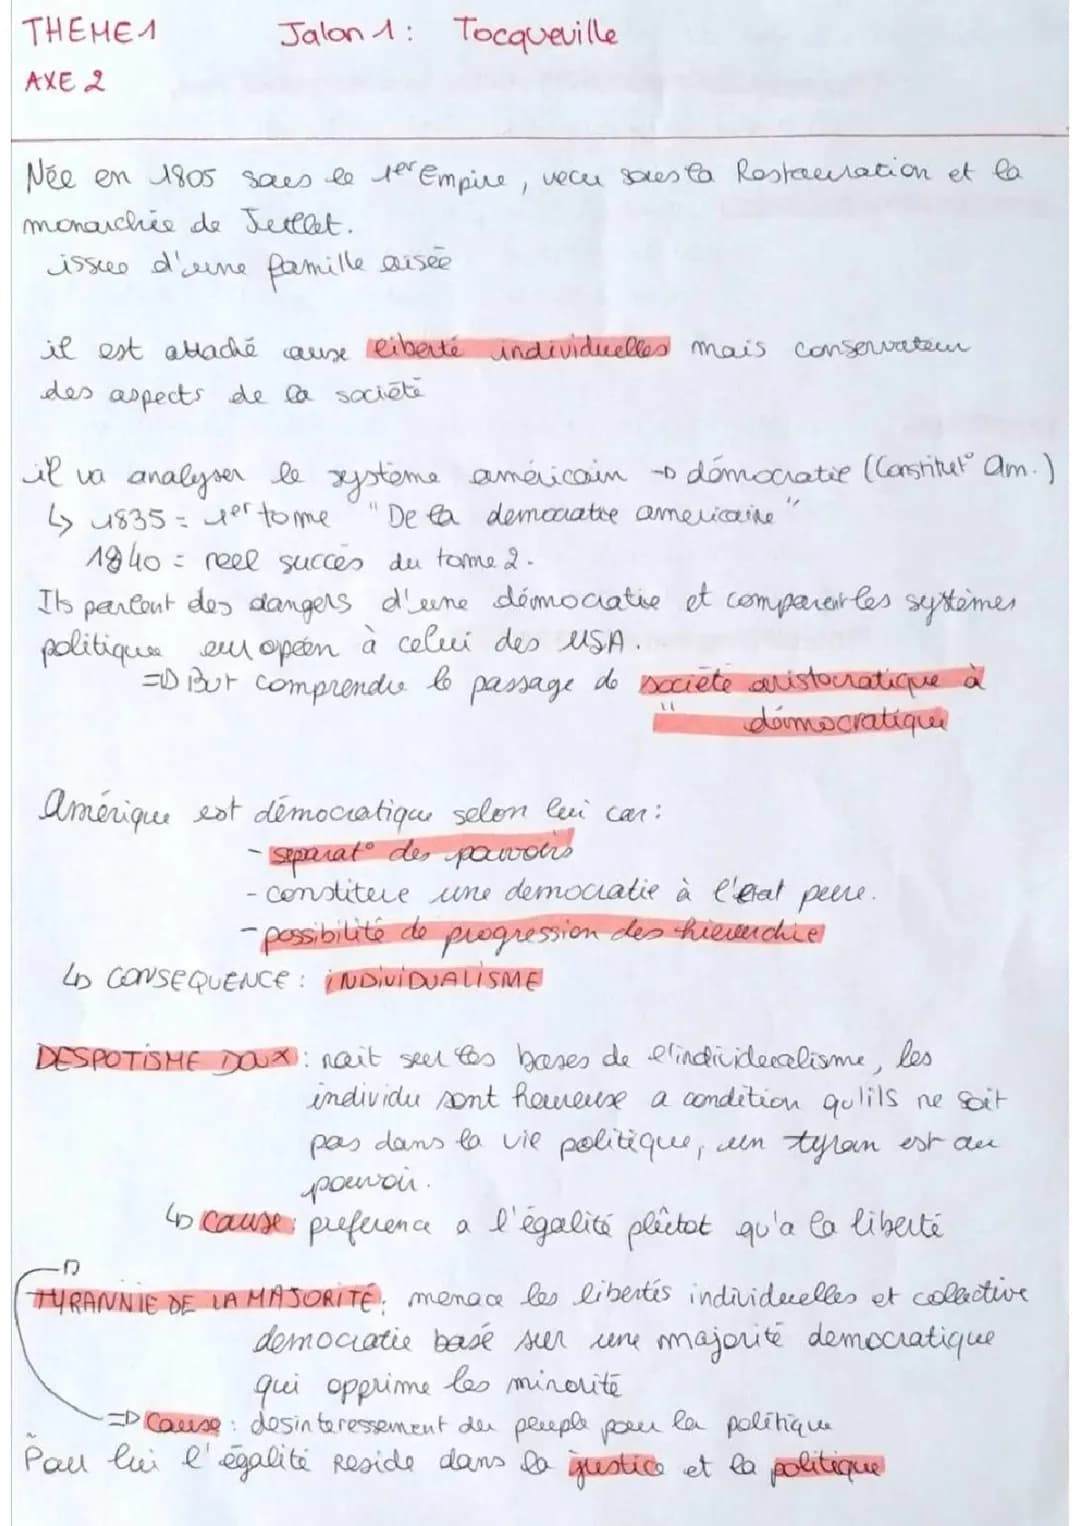 THEME 1 Jalon 1 : Tocqueville
AXE 2
Née en 1805 sous le 1er Empire, vecu sous la Restauration et la
monarchie de Juillet.
issue d'une famille aisée
il est attaché aux liberté individuelles mais conservateur
des aspects de la société
il va analyser le système américain → démocratie (Constitut° Am.)
↳ 1835 = 1er tome "De la democratie americaine"
1840 = reel succès du tome 2.
Ils parlent des dangers d'une démocratie et comparent les systèmes
politique européen à celui des USA.
⇒ But comprendre le passage de société aristocratique à
" démocratique
Amérique est démocratique selon lui car :
- separat° des pouvoirs
- constitue une democratie à l'état pure.
- possibilité de progression des hierarchie
↳ CONSEQUENCE : INDIVIDUALISME
DESPOTISME DOUX : nait sur les bases de l'individualisme, les
individu sont heureuse a condition qu'ils ne soit
pas dans la vie politique, un tyran est au
pouvoir.
↳ Cause : preference a l'égalité plûtot qu'a la liberté
TYRANNIE DE LA MAJORITÉ : menace les libertés individuelles et collective
democratie basé sur une majorité democratique
qui opprime les minorité
⇒ Cause : desinteressement du peuple pour la politique
Pour lui l'égalité reside dans la justice et la politique